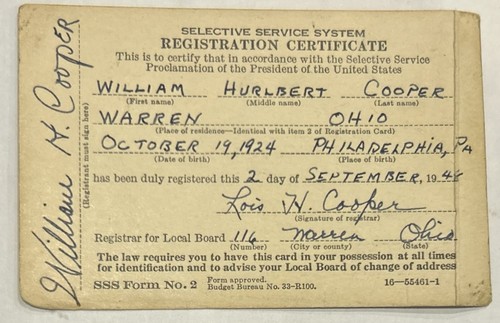 SELECTIVE SERVICE SYSTEM
REGISTRATION CERTIFICATE
This is to certify that in accordance with the Selective Service
Proclamation of the President of the United States
WILLIAM HURLBERT COOPER
(First name) (Middle name) (Last name)
WARREN OHIO
(Place of residence—Identical with item 2 of Registration Card)
OCTOBER 19, 1924 PHILADELPHIA, PA
(Date of birth) (Place of birth)
has been duly registered this 2 day of SEPTEMBER, 1948
Lois H. Cooper
(Signature of registrar)
Registrar for Local Board 116 Warren Ohio
(Number) (City or county) (State)
The law requires you to have this card in your possession at all times
for identification and to advise your Local Board of change of address
SSS Form No. 2 Form approved.
Budget Bureau No. 33-R100. 16—55461-1
William H. Cooper
(Registrant must sign here)